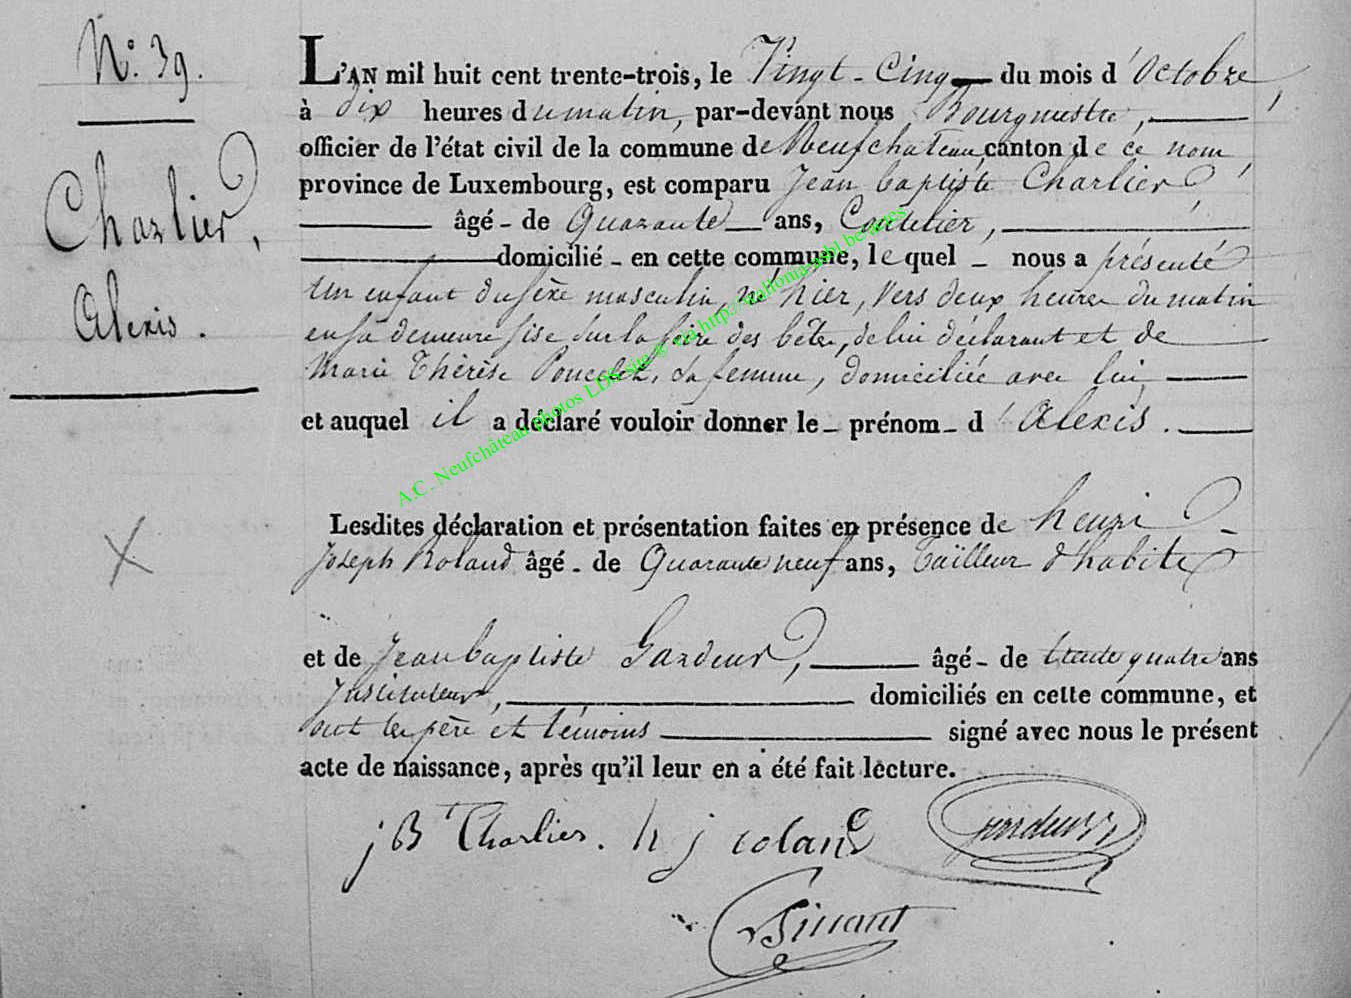 N.° 39.
Charlier,
Alexis.
L'AN mil huit cent trente-trois, le Vingt-Cinq du mois d'Octobre,
à dix heures du matin, par-devant nous Bourgmestre,
officier de l'état civil de la commune de Neufchateau, canton de ce nom,
province de Luxembourg, est comparu Jean baptiste Charlier,
âgé - de Quarante ans,
domicilié - en cette commune, le quel - nous a présenté
un enfant du sexe masculin, né hier, vers deux heures du matin
en sa demeure sise sur la foire des bêtes, de lui déclarant et de
Marie Thérèse Poncelet, sa femme, domiciliée avec lui,
et auquel il a déclaré vouloir donner le - prénom - d'Alexis.
Lesdites déclaration et présentation faites en présence de henri
Joseph Roland âgé - de Quarante neuf ans, tailleur d'habits
et de Jean baptiste Gardeur, âgé - de trente quatre ans
Instituteur, domiciliés en cette commune, et
ont les père et témoins signé avec nous le présent
acte de naissance, après qu'il leur en a été fait lecture.
j Bt Charlier. h j roland
A.C. Neufchâteau photos LDS site © via http://wallonia-asbl.be/actes